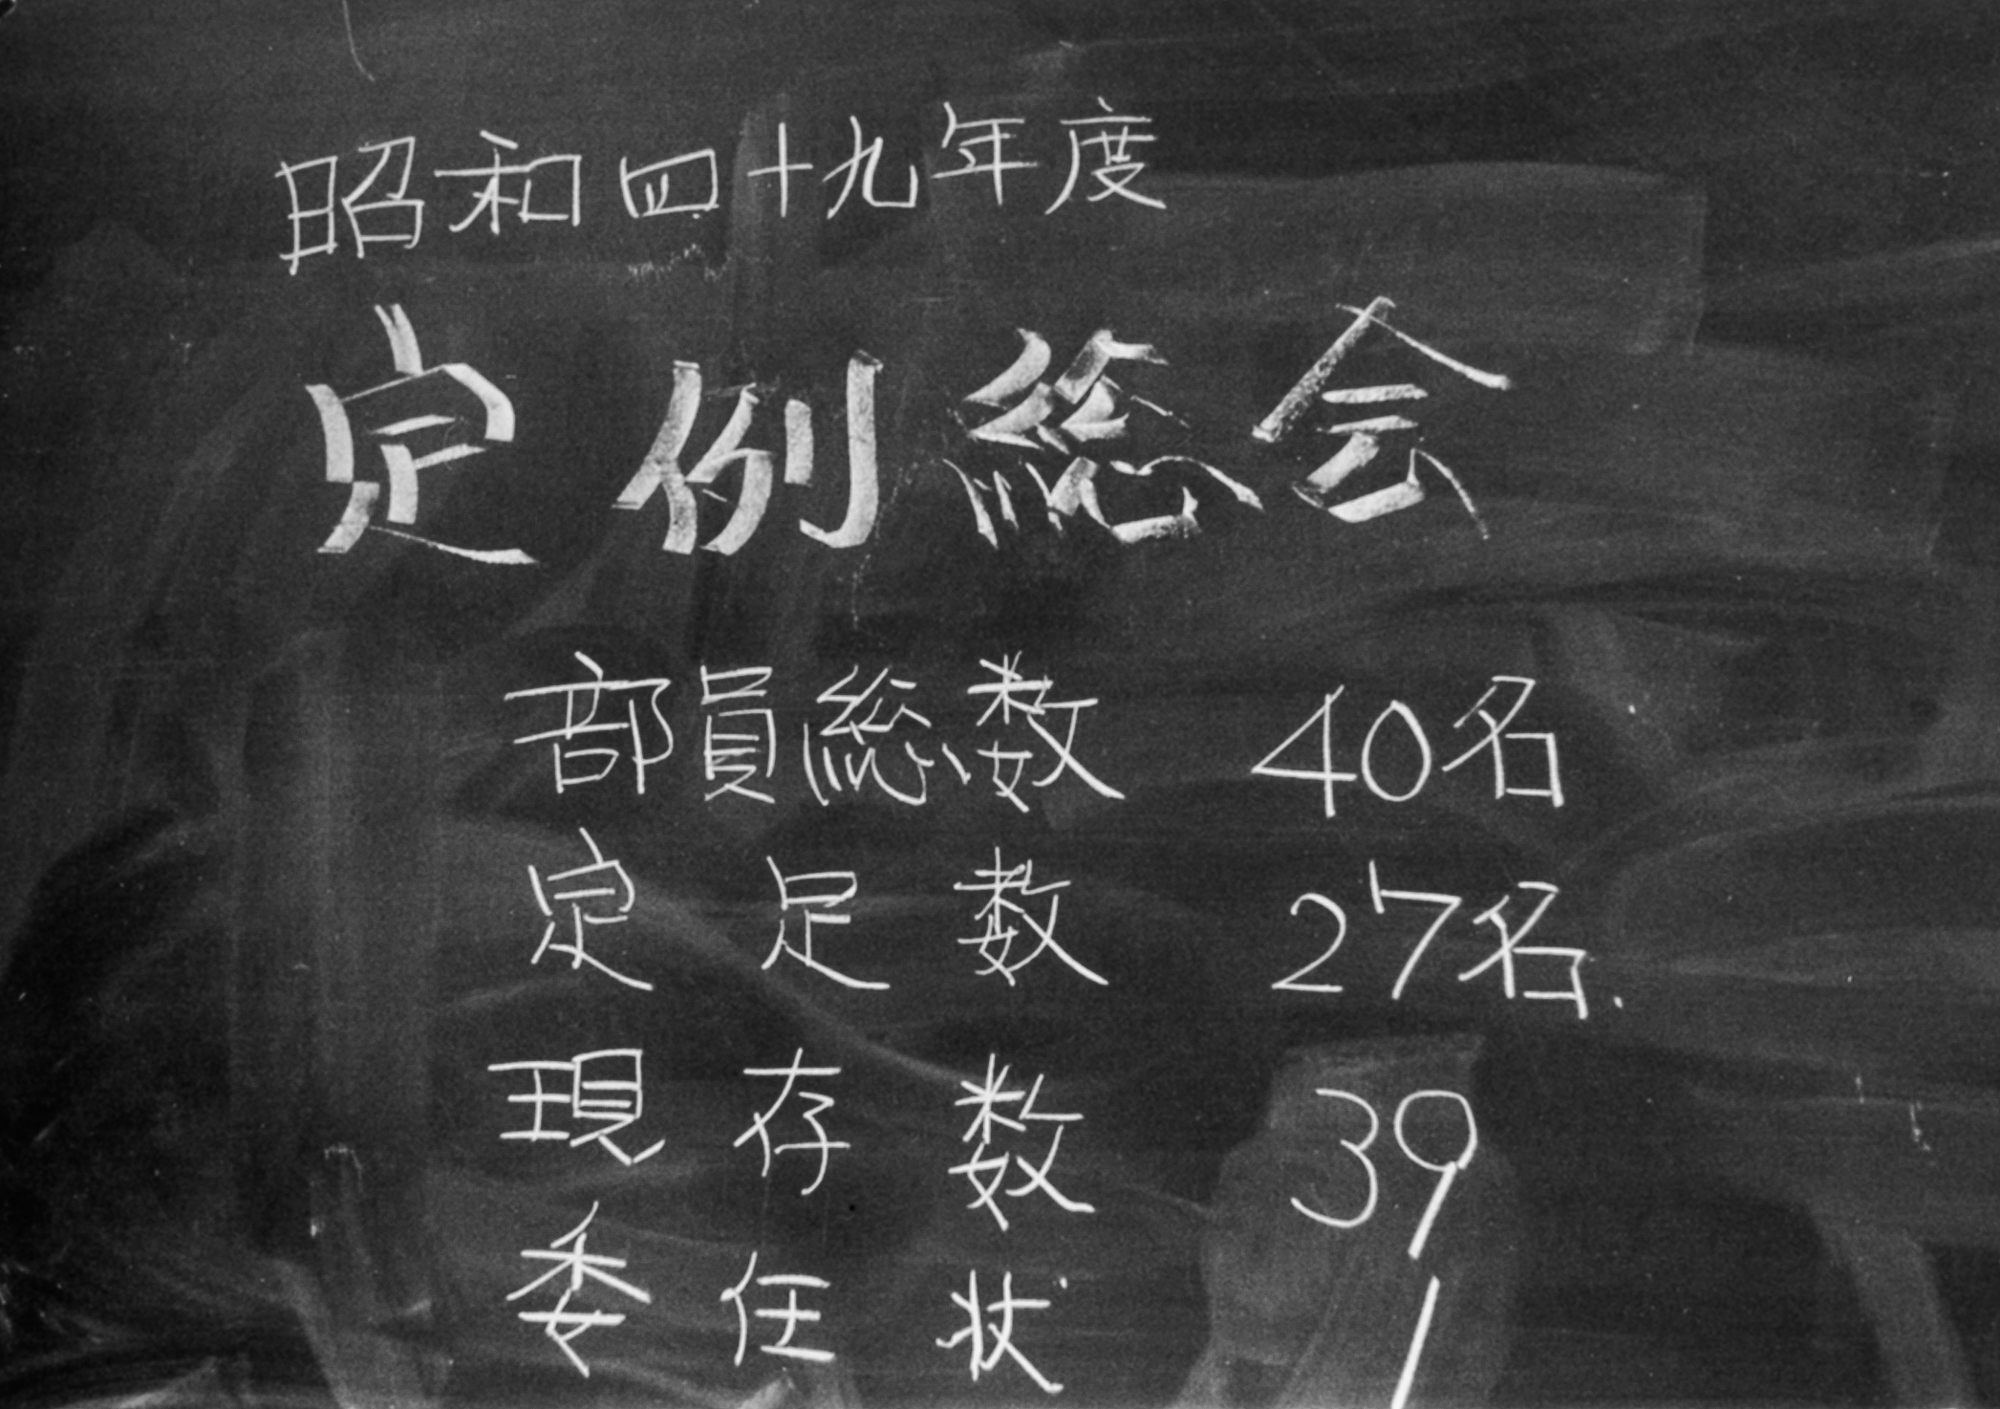 昭和四十九年度
定例総会
部員総数 40名
定足数 27名.
現存数 39
委任状 1